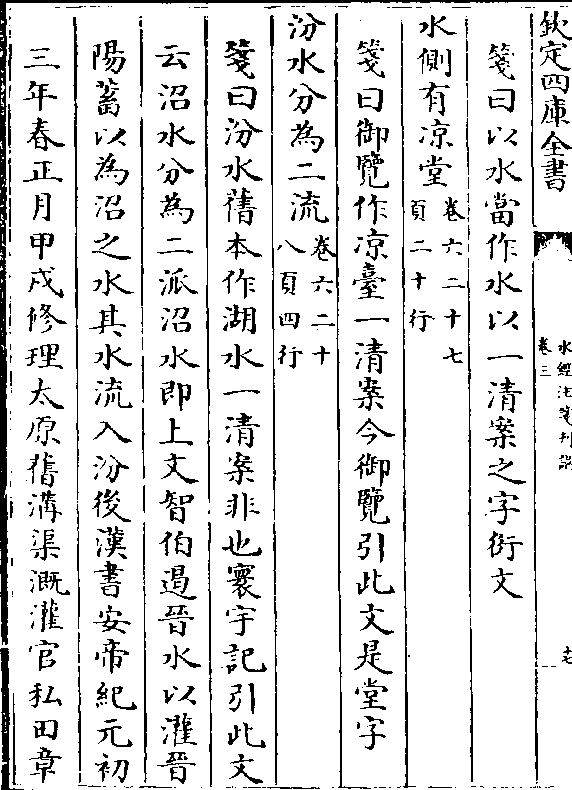 欽定四庫全書
水經注箋刊誤
卷三
十七
箋曰以水當作水以一清案之字衍文
水側有凉堂卷六二十七頁二十行
箋曰御覽作凉臺一清案今御覽引此文是堂字
汾水分為二流卷六二十八頁四行
箋曰汾水舊本作湖水一清案非也寰宇記引此文
云沼水分為二派沼水即上文智伯遏晉水以灌晉
陽蓄以為沼之水其水流入汾後漢書安帝紀元初
三年春正月甲戌修理太原舊溝渠溉灌官私田章